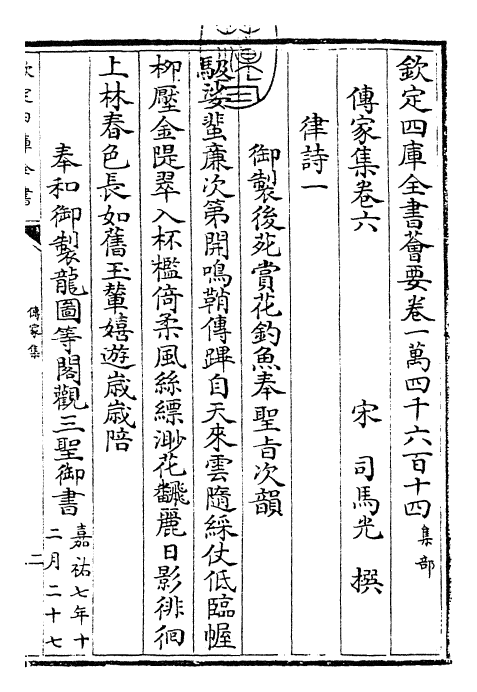 欽定四庫全書薈要卷一萬四千六百十四 集部
傳家集卷六 宋 司馬光 撰
律詩一
御製後苑賞花釣魚奉聖旨次韻
馺娑蜚廉次第開鳴鞘傳蹕自天來雲隨綵仗低臨幄
栁壓金隄翠入杯檻倚柔風絲縹渺花飜麗日影徘徊
上林春色長如舊玉輦嬉遊歳歳陪
奉和御製龍圖等閣觀三聖御書 嘉祐七年十
二月二十七
欽定四庫全書
傳家集